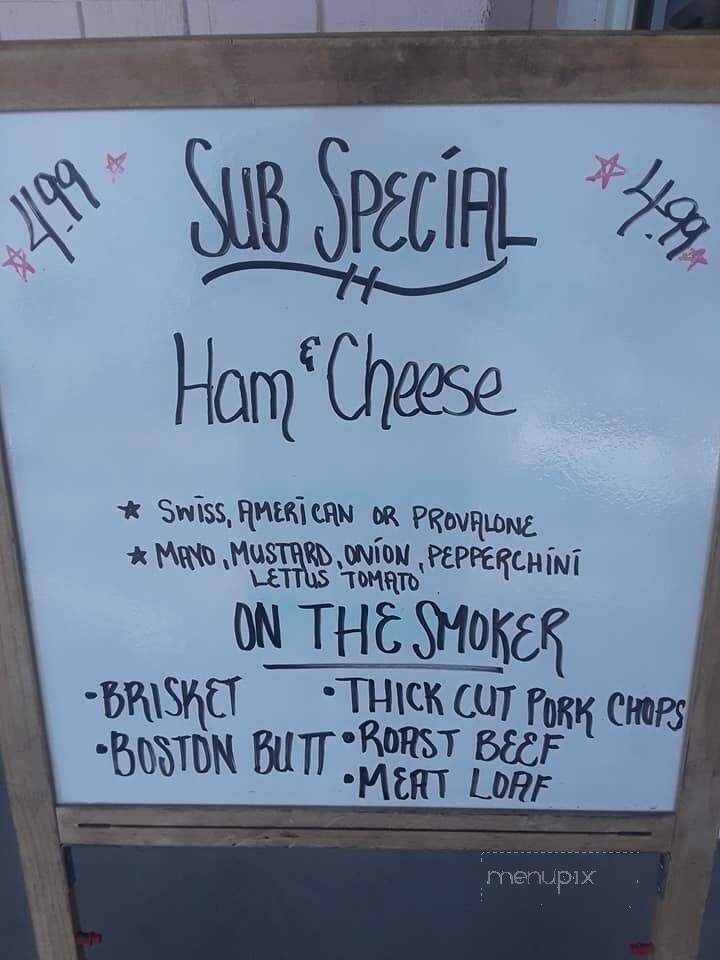 4.99
SUB SPECIAL
4.99
Ham & Cheese
★ SWISS, AMERICAN OR PROVALONE
★ MAYO, MUSTARD, ONION, PEPPERCHINI
LETTUS TOMATO
ON THE SMOKER
•BRISKET •THICK CUT PORK CHOPS
•BOSTON BUTT •ROAST BEEF
•MEAT LOAF
menupix